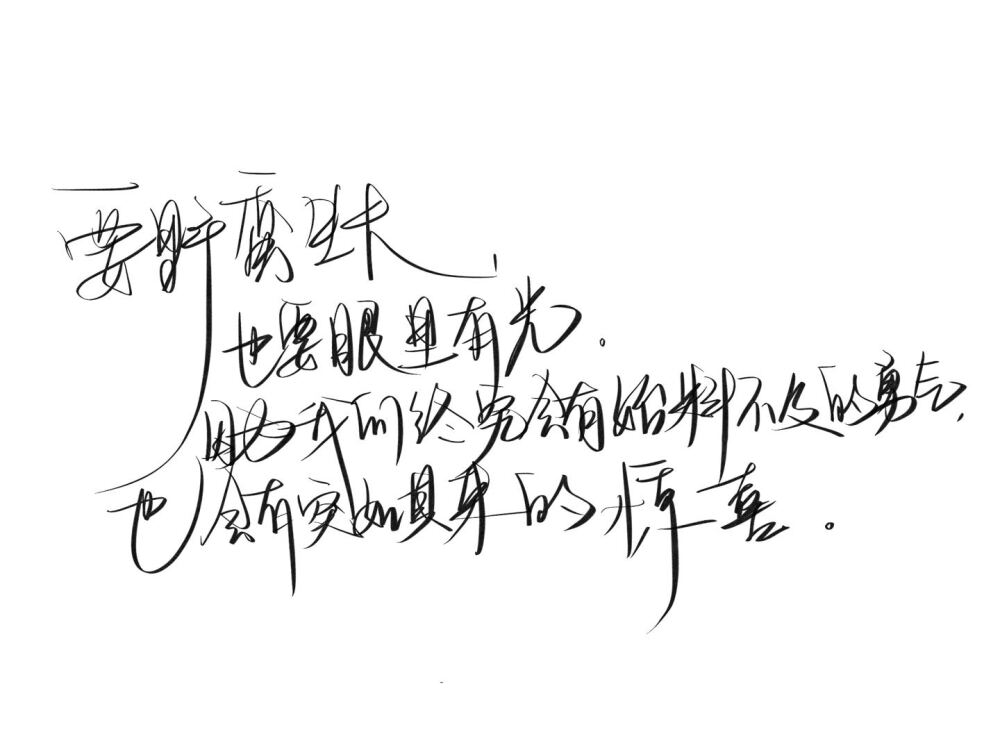 要野蛮生长，
也要眼里有光。
因为我们终究会有始料不及的勇气，
也会有突如其来的惊喜。